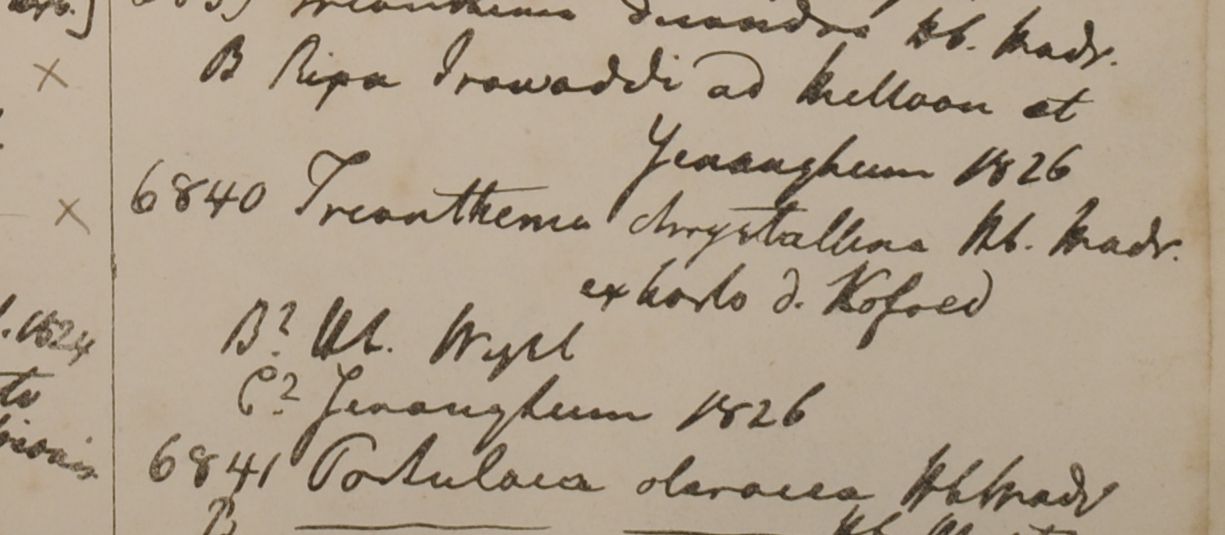 Trianthema decandra Hb. Madr.
B Ripa Irawaddi ad Melloon et
Yenangheum 1826
6840 Trianthema chrystallina Hb. Madr.
ex horto d. Kofoed
B? Hb. Wight
C? Yenangheum 1826
6841 Portulaca oleracea Hb Madr
B
1824